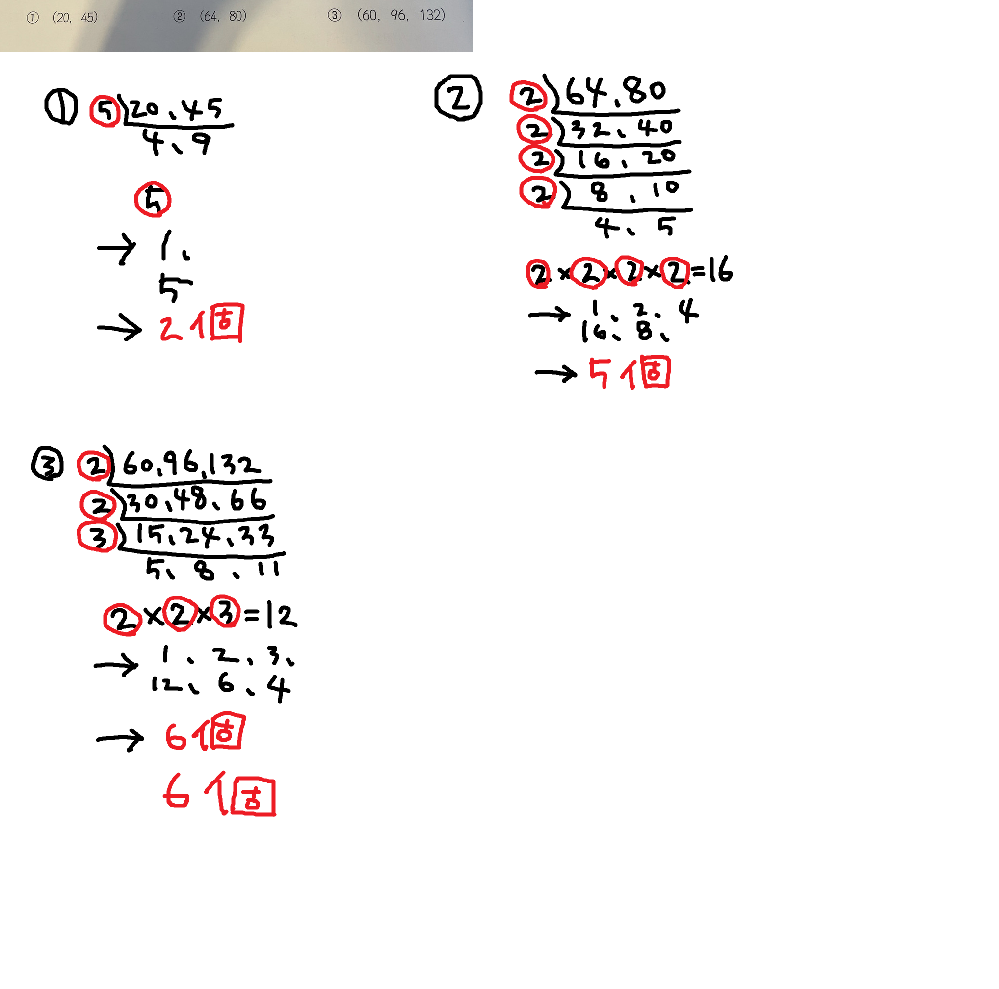 ① (20, 45) ② (64, 80) ③ (60, 96, 132)
① 5)20、45
4、9
5
→ 1、
5
→ 2個
② 2)64、80
2)32、40
2)16、20
2)8、10
4、5
2×2×2×2=16
→ 1、2、4
16、8、
→ 5個
③ 2)60,96,132
2)30、48、66
3)15、24、33
5、8、11
2×2×3=12
→ 1、2、3、
12、6、4
→ 6個
6個